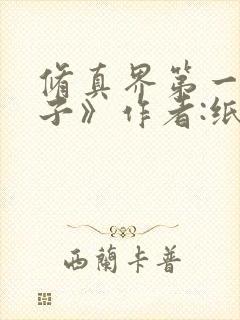 脩真界第一
子》作者:纸
西蘭卡普